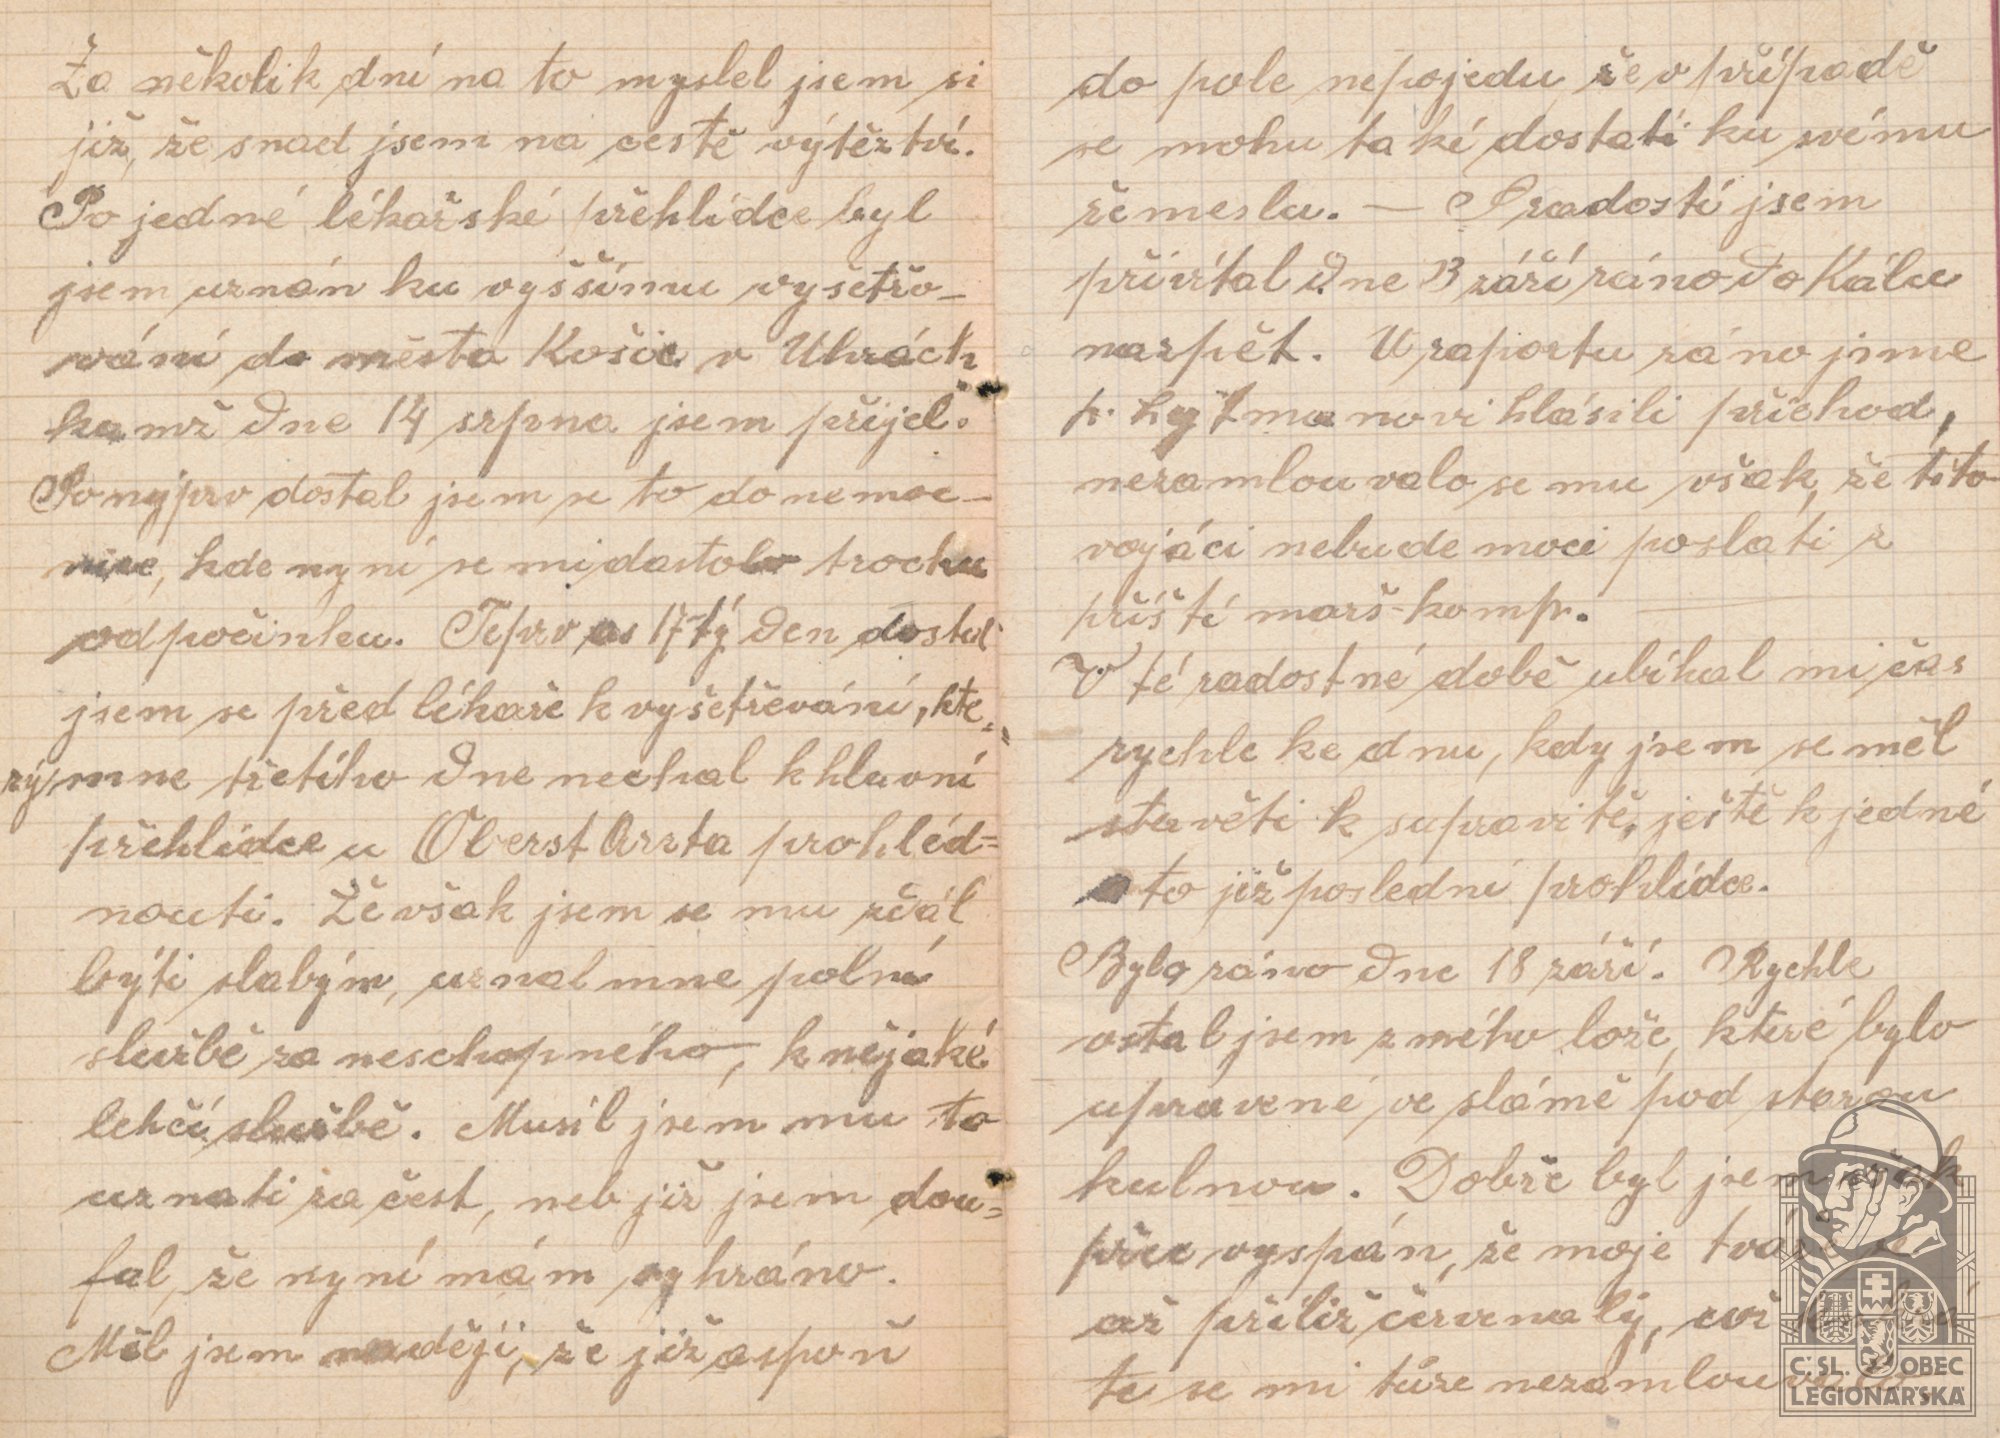 Za několik dní na to myslel jsem si
již, že snad jsem na cestě výtěztví.
Po jedné lékařské přehlídce byl
jsem uznán ku vyššímu vyšetřo-
vání do města Košic v Uhrách
kamž dne 14 srpna jsem přijel.
Ponejprv dostal jsem se to do nemoc-
nice, kde nyní se mi dostalo trochu
odpočinku. Teprv as 17tý den dostal
jsem se před lékaře k vyšetřování, kte-
rý mne třetího dne nechal k hlavní
přehlídce u Oberst Arzta prohléd=
nouti. Že však jsem se mu zdál
býti slabým, uznal mne polní
službě za neschopného, k nějaké
lehčí službě. Musil jsem mu to
uznati za čest, neb již jsem dou=
fal, že nyní mám vyhráno.
Měl jsem naději, že již aspoň
do pole nepojedu, že v případě
se mohu také dostati ku svému
řemeslu. — S radostí jsem
přivítal dne 13 září ráno do Kálu
nazpět. U raportu ráno jsme
p. hejtmanovi hlásili příchod,
nezamlouvalo se mu však, že tito
vojáci nebude moci poslati z
příští marš-komp.
V té radostné době ubíhal mi čas
rychle ke dnu, kdy jsem se měl
stavěti k supravitě, ještě k jedné
a to již poslední prohlídce.
Bylo ráno dne 18 září. Rychle
vstal jsem z mého lože, které bylo
upravené ve slámě pod starou
kulnou. Dobře byl jsem však
přec vyspán, že moje tváře se
až příliž červenaly, což
tu se mi túze nezamlouvalo
Č.SL. OBEC
LEGIONÁŘSKÁ